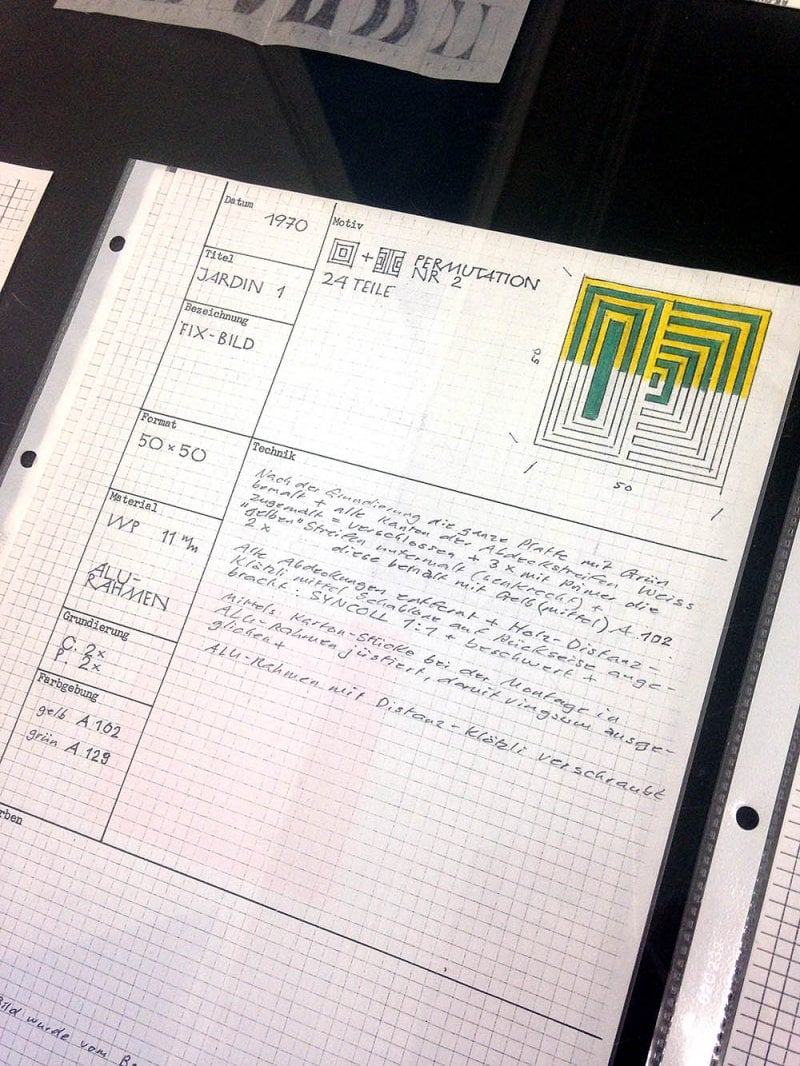 Datum
1970
Motiv
+ PERMUTATION
NR 2
24 TEILE
Titel
JARDIN 1
Bezeichnung
FIX-BILD
50
50
Format
50 × 50
Technik
Nach der Grundierung die ganze Platte mit Grün
bemalt + alle Kanten der Abdeckstreifen Weiss
zugemalt = verschlossen + 3 x mit Primer die
"gelben" Streifen untermalt (senkrecht) +
2 x diese bemalt mit Gelb (mittel) A. 102
Alle Abdeckungen entfernt + Holz-Distanz-
Klötzli mittel Schablone auf Rückseise ange-
bracht: SYNCOLL 1:1 + beschwert +
Mittels Karton-Stücke bei der Montage in
ALU-Rahmen justiert, damit ringsum ausge-
glichen +
ALU-Rahmen mit Distanz-Klötzli verschraubt
Material
11 m/m
ALU-
RAHMEN
Grundierung
C. 2x
P. 2x
Farbgebung
gelb A.102
grün A 129
rben
Bild wurde vom